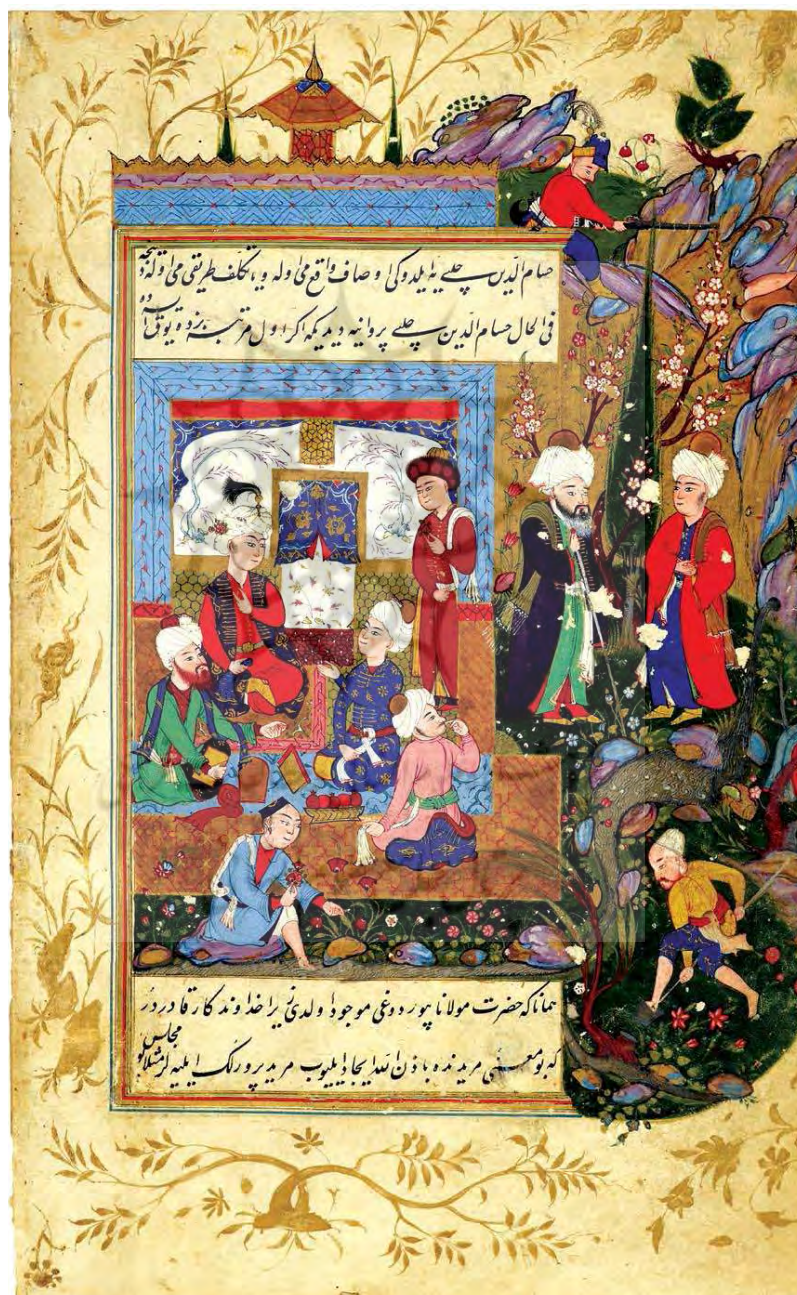 حسام الدین چلبی یه ایلدوکی اوصاف واقع می اوله و یا تکلف طریقی می اوله دیجه
فی الحال حسام الدین چلبی پروانیه دیدیکه اکر اول مرتبه بزده یوقی ایسه ده
همانا که حضرت مولانا بیوردوغی موجود اولدی زیرا خداوندکار قادردر
که بو معنیی مریدنده باذن الله ایجاد ایلیوب مرید پرورلک ایلیه لر مثلا بو
مجلس